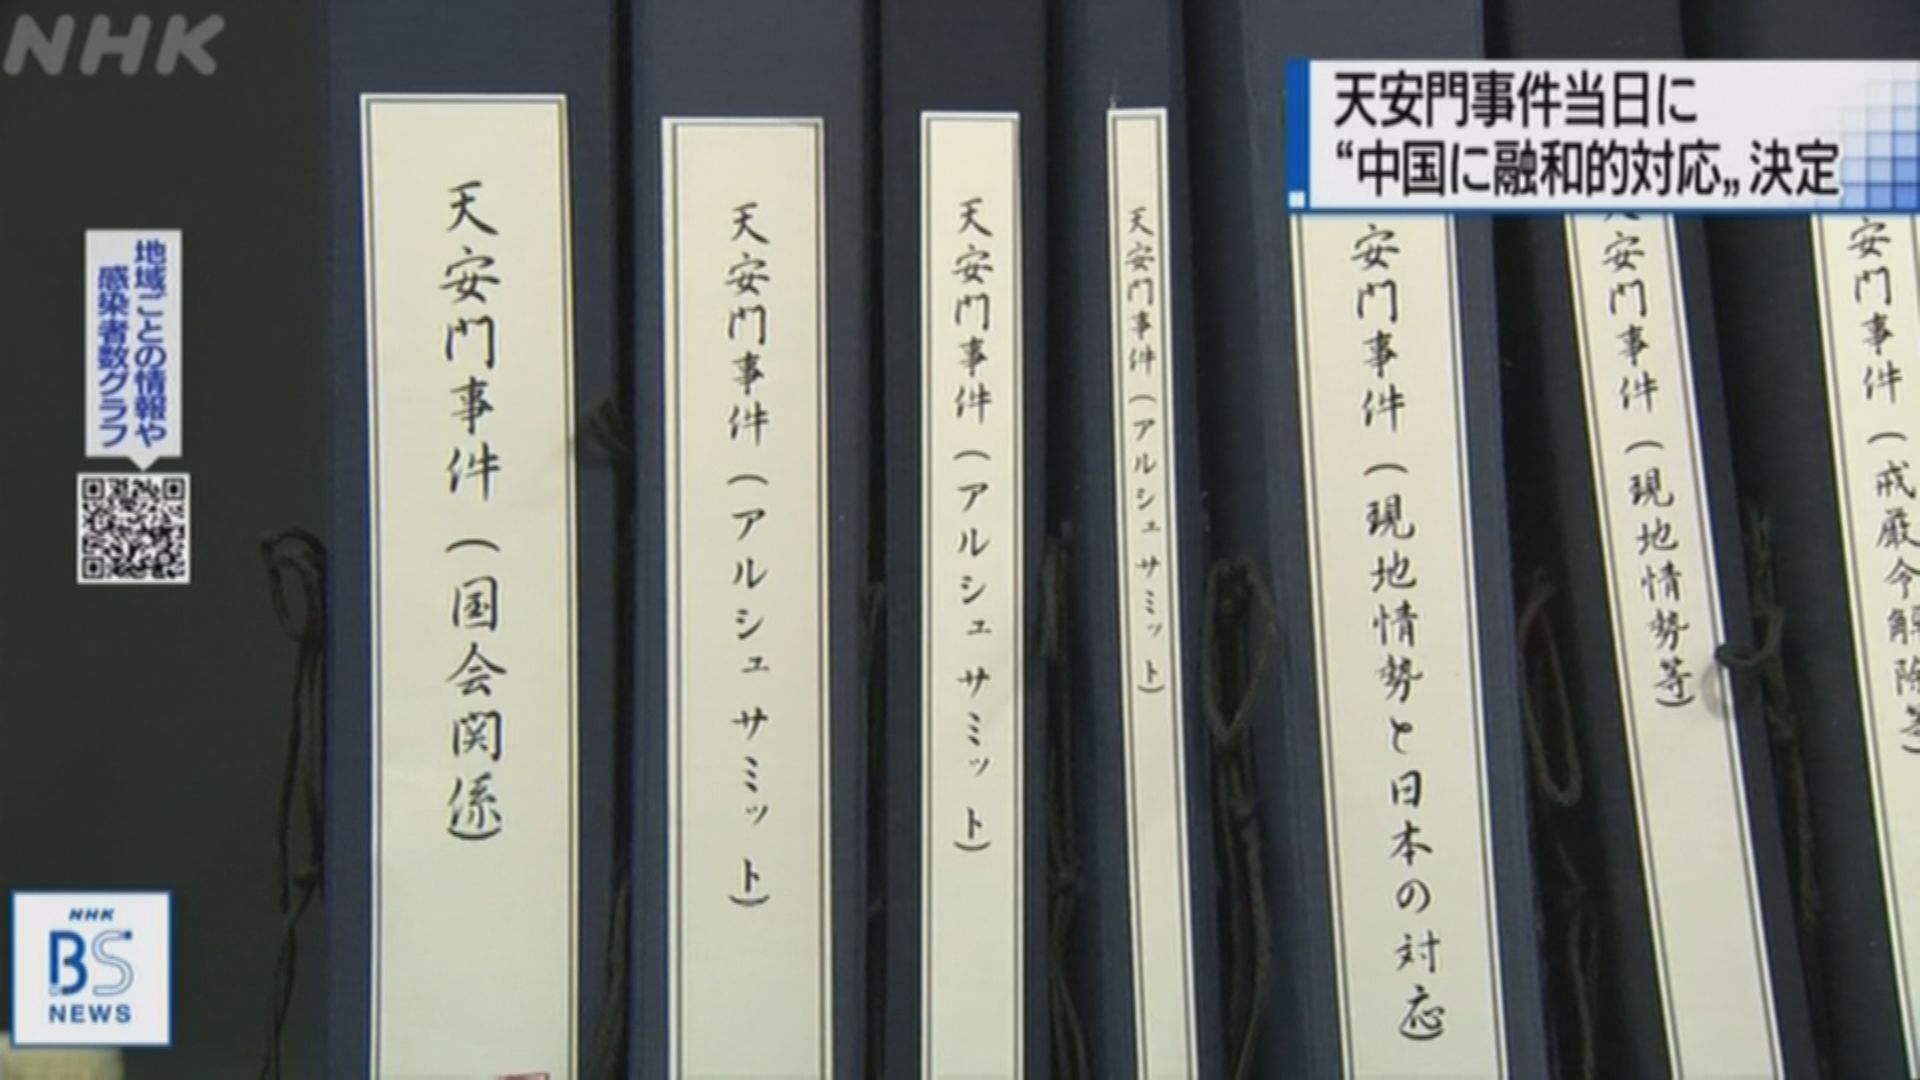 NHK
天安門事件当日に
“中国に融和的対応„決定
地域ごとの情報や
感染者数グラフ
天安門事件(国会関係)
天安門事件(アルシュサミット)
天安門事件(アルシュサミット)
天安門事件(アルシュサミット)
安門事件(現地情勢と日本の対応)
安門事件(現地情勢等)
安門事件(戒厳令解除等)
NHK
BS
NEWS